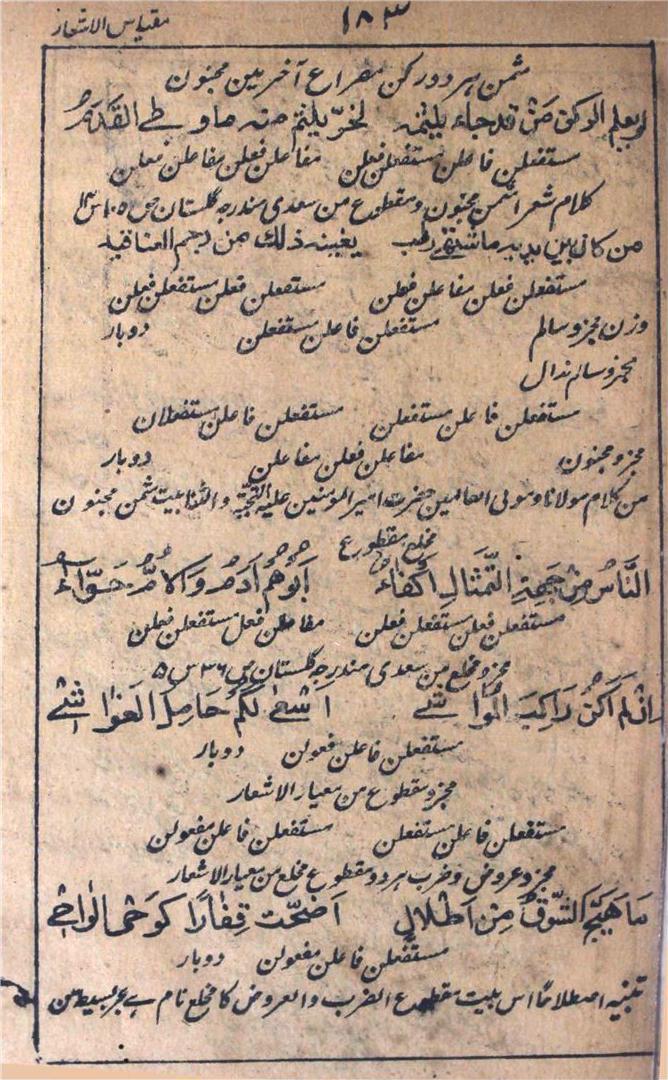 ۱۸۳
مقیاس الاشعار
مثمن ہر دو رکن مصراع آخر بین مخبون
لو یعلم الرکن من قد جاء یلثمہ لخرّ یلثم منہ ما وطے القدم
مستفعلن فاعلن مستفعلن فعلن مفاعلن فعلن مفاعلن فعلن
کلام شعر مثمن مخبون و مقطوع من سعدی مندرجہ گلستان ص ۱۰۵ س ۱۳
من کان بین یدیہ ما اشتہے رطب یغنیہ ذلک من رجم العناقید
مستفعلن فعلن مفاعلن فعلن مستفعلن فعلن مستفعلن فعلن
وزن مجزو سالم مستفعلن فاعلن مستفعلن دوبار
مجزو سالم مذال
مستفعلن فاعلن مستفعلن مستفعلن فاعلن مستفعلان
مجزو مخبون مفاعلن فعلن مفاعلن دوبار
من کلام مولانا و مولی العالمین حضرت امیر المومنین علیہ التحیّۃ والثنا بیت مثمن مخبون
مخلع مقطوع
النَّاسُ مِنْ جِهَةِ التِّمْثَالِ اَکْفَاءُ اَبُوْهُمُ اٰدَمُ وَالْاُمُّ حَوَّاءُ
مستفعلن فعلن مستفعلن فعلن مفاعلن فعل مستفعلن فعلن
مجزو مخلع من سعدی مندرجہ گلستان ص ۳۶ س ۵
اِنْ لَمْ اَکُنْ رَاکِبَ الْمَوَاشِیْ اَسْعٰی لَکُمْ حَامِلَ الْغَوَاشِیْ
مستفعلن فاعلن فعولن دوبار
مجزو مقطوع من معیار الاشعار
مستفعلن فاعلن مستفعلن مستفعلن فاعلن مفعولن
مجزو عروض و ضرب ہر دو مقطوع مخلع من معیار الاشعار
مَا هَیَّجَ الشَّوْقَ مِنْ اَطْلَالٍ اَضْحَتْ قِفَارًا کَوَحْیِ الْوَاحِیْ
مستفعلن فاعلن مفعولن دوبار
تنبیہ اصطلاحًا اس بیت مقطوع الضرب والعروض کا مخلع نام ہے بحر بسیط من